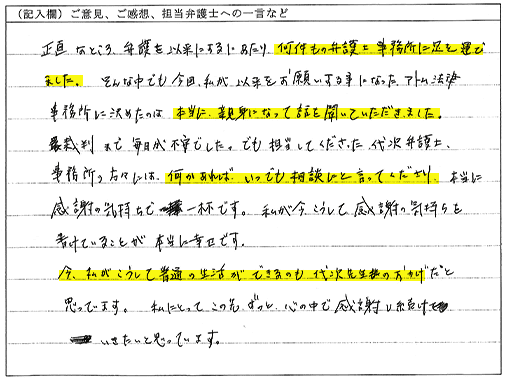 (記入欄)ご意見、ご感想、担当弁護士への一言など
正直なところ、弁護士以来にするにあたり、何件もの弁護士事務所に足を運び
ました。そんな中でも今回、私が以来をお願いする事になったアトム法律
事務所に決めたのは、本当に、親身になって話を聞いていただきました。
裁判まで毎日が不安でした。でも担当してくださった代次弁護士、
事務所の方々には、何かあれば、いつでも相談にと言ってくださり、本当に
感謝の気持ちで一杯です。私が今、こうして感謝の気持ちを
書けていることが本当に幸せです。
今、私がこうして普通の生活ができるのも代次先生様のおかげだと
思っています。私にとってこの先ずっと、心の中で感謝し続けて
いきたいと思っています。